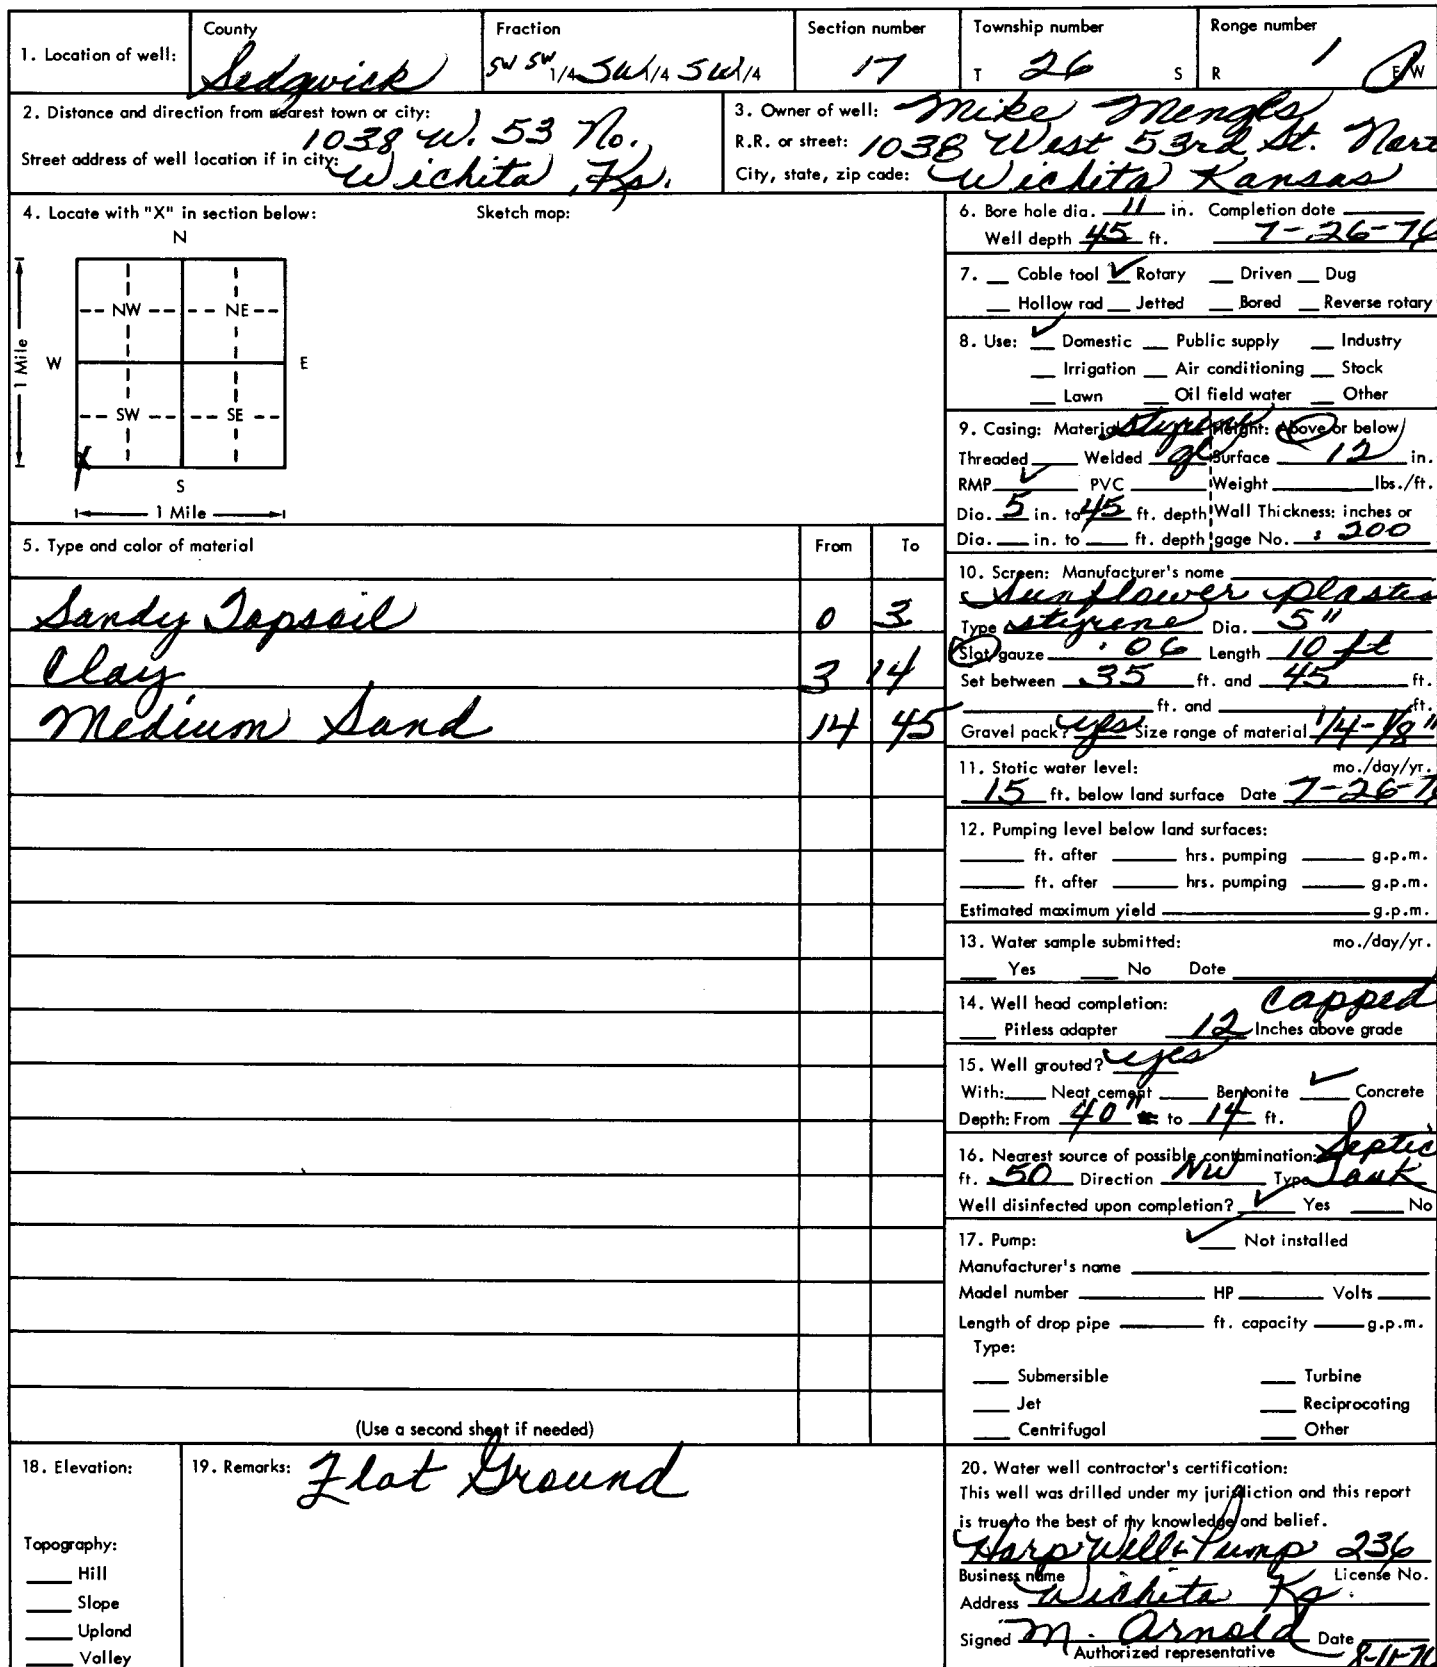 1. Location of well:
County
Sedgwick
Fraction
SW SW 1/4 SW 1/4 SW 1/4
Section number
17
Township number
T 26 S
Range number
R 1 E/W
2. Distance and direction from nearest town or city:
1038 W. 53 No.
Street address of well location if in city:
Wichita, Ks.
3. Owner of well: Mike
R.R. or street: 1038 West 53rd St. Nort
City, state, zip code: Wichita Kansas
4. Locate with "X" in section below:
Sketch map:
N
NW NE
W E
SW SE
X
S
1 Mile
1 Mile
5. Type and color of material From To
Sandy Topsoil 0 3
Clay 3 14
Medium Sand 14 45
(Use a second sheet if needed)
6. Bore hole dia. 11 in. Completion date
Well depth 45 ft. 7-26-76
7. Cable tool ✓ Rotary Driven Dug
Hollow rod Jetted Bored Reverse rotary
8. Use: ✓ Domestic Public supply Industry
Irrigation Air conditioning Stock
Lawn Oil field water Other
9. Casing: Material styrene Height: Above or below
Threaded Welded gl Surface 12 in.
RMP ✓ PVC Weight lbs./ft.
Dia. 5 in. to 45 ft. depth Wall Thickness: inches or
Dia. in. to ft. depth gage No. .200
10. Screen: Manufacturer's name
Sunflower Plastic
Type styrene Dia. 5"
Slot/gauze .06 Length 10 ft
Set between 35 ft. and 45 ft.
ft. and ft.
Gravel pack? yes Size range of material 1/4-1/8"
11. Static water level: mo./day/yr.
15 ft. below land surface Date 7-26-76
12. Pumping level below land surfaces:
ft. after hrs. pumping g.p.m.
ft. after hrs. pumping g.p.m.
Estimated maximum yield g.p.m.
13. Water sample submitted: mo./day/yr.
Yes No Date
14. Well head completion: capped
Pitless adapter 12 Inches above grade
15. Well grouted? yes
With: Neat cement Bentonite ✓ Concrete
Depth: From 40" to 14 ft.
16. Nearest source of possible contamination: Septic
ft. 50 Direction NW Type Tank
Well disinfected upon completion? ✓ Yes No
17. Pump: ✓ Not installed
Manufacturer's name
Model number HP Volts
Length of drop pipe ft. capacity g.p.m.
Type:
Submersible Turbine
Jet Reciprocating
Centrifugal Other
18. Elevation:
Topography:
Hill
Slope
Upland
Valley
19. Remarks: Flat Ground
20. Water well contractor's certification:
This well was drilled under my jurisdiction and this report
is true to the best of my knowledge and belief.
Harp Well & Pump 236
Business name License No.
Address Wichita Ks
Signed M. Arnold Date 8-11-76
Authorized representative